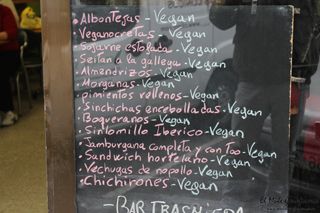 • Albóntejas - Vegan
• Veganocretas - Vegan
• Sojarne estofada - Vegan
• Seitán a la gallega - Vegan
• Almendrizos - Vegan
• Morganas - Vegan
• pimientos rellenos - Vegan
• Sinchichas encebolladas - Vegan
• Boqueranos - Vegan
• Sinlomillo Ibérico - Vegan
• Jamburgana completa y con Too - Vegan
• Sandwich hortelano - Vegan
• Vechugas de nopollo - Vegan
• Chichirones - Vegan
- BAR TRASNIEDA